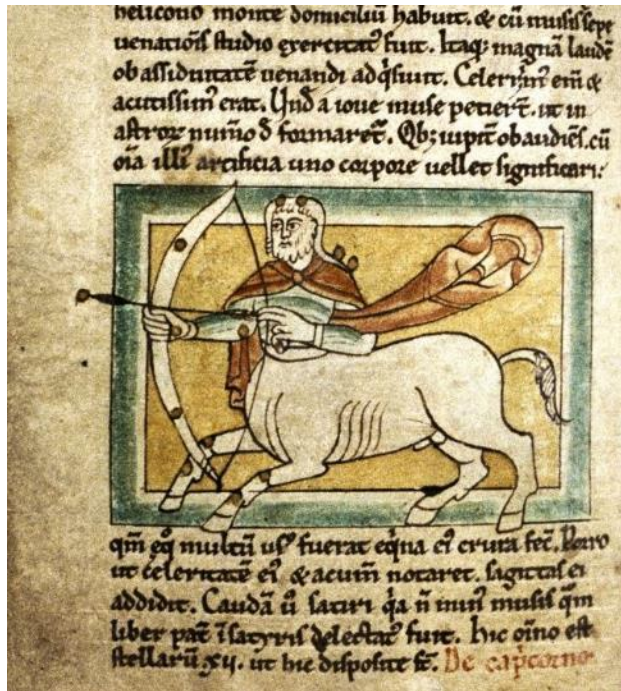 helicono monte domiciliū habuit. & cū musis sepe
uenationis studio exercitat᷒ fuit. Itaq; magnā laudē
ob assiduitatē uenandi adq̇siuit. Celerrim᷒ eni &
acutissim᷒ erat. Vnď a ioue muse petier̄t. ut in
astroꝝ num̄o formaret᷒. Qb; iupit̄ obaudiēs. cū
oīa illi᷒ artificia uno corpore uellet significari:
qm̄ eq̊ multū us᷒ fuerat eq̇na ei᷒ crura fec̄. Porro
ut celeritatē ei᷒ & acum̄ notaret. sagittas ei
addidit. Caudā ū satiri q̇a n̄ min᷒ musis q̄m
liber pat̄ ī satyris delectat᷒ fuit. hic oīno est
stellarū .xii. ut hic disposite st̄. De caṗcorno